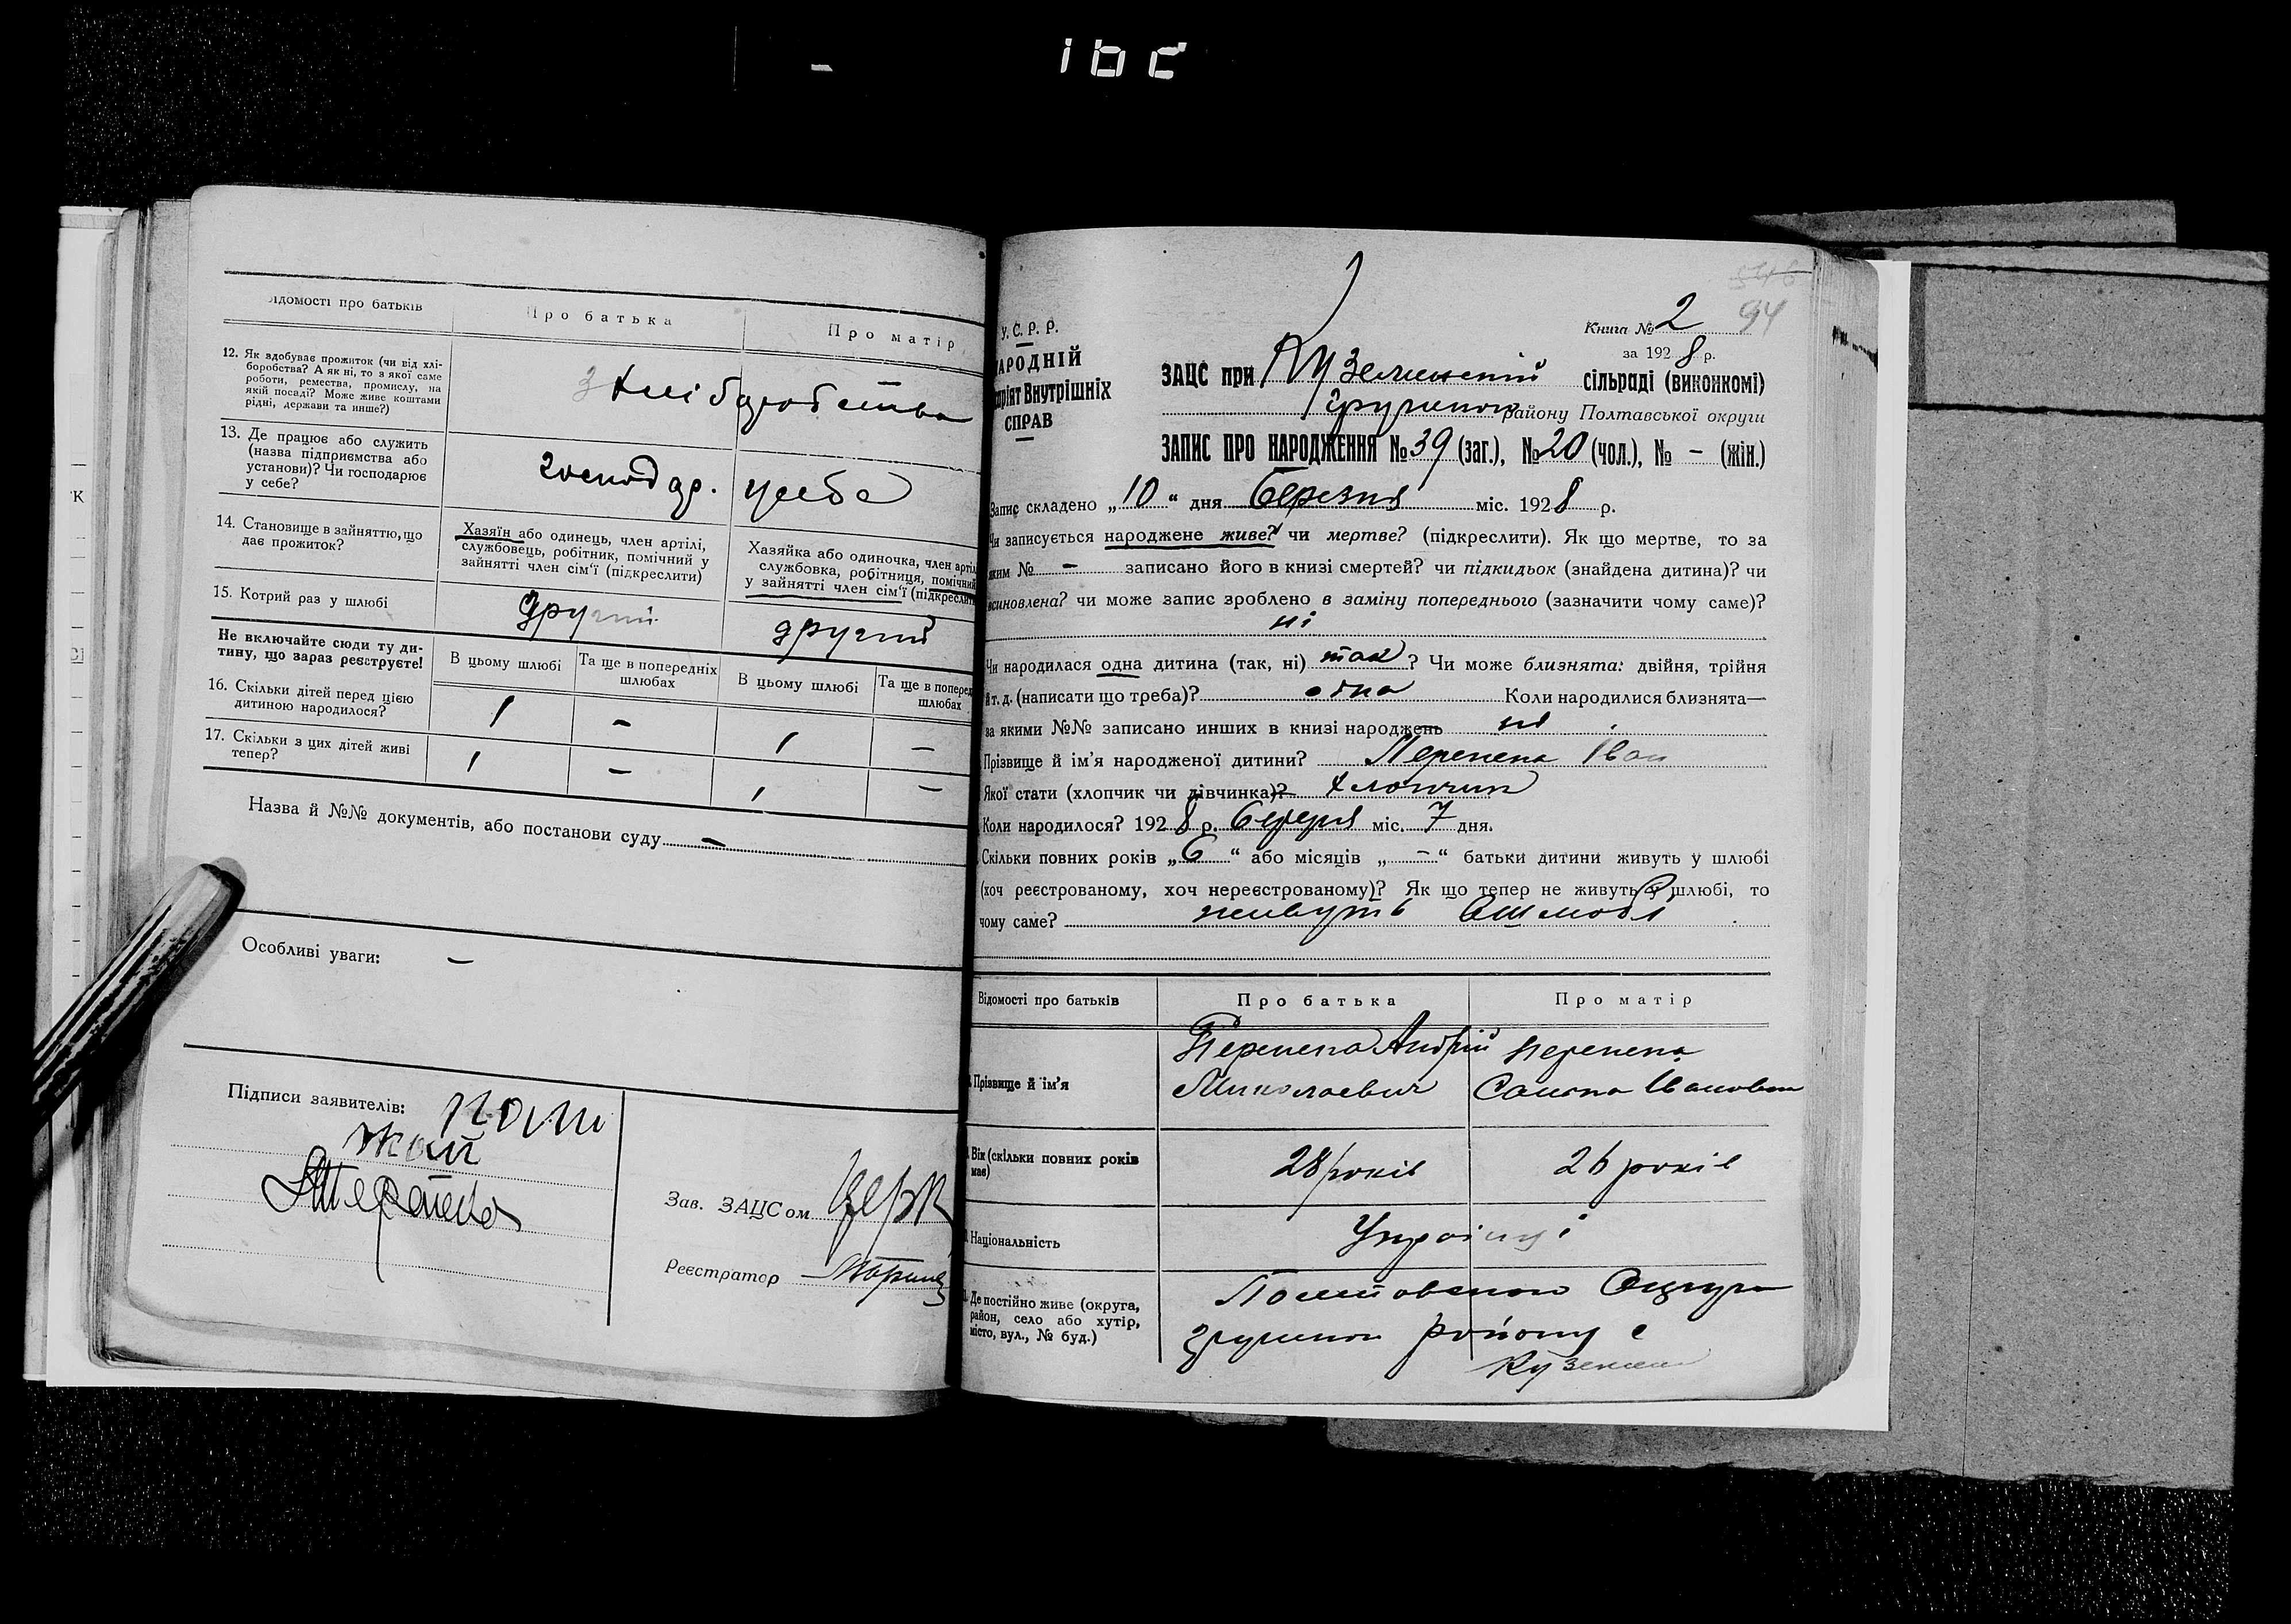 ідомості про батьків
Про батька
Про матір
12. Як здобуває прожиток (чи від хлі-
боробства? А як ні, то з якої саме
роботи, ремества, промислу, на
якій посаді? Може живе коштами
рідні, держави та инше?)
з хліборобства
13. Де працює або служить
(назва підприємства або
установи)? Чи господарює
у себе?
господар. у себе
14. Становище в зайняттю, що
дає прожиток?
Хазяїн або одинець, член артілі,
службовець, робітник, помічний у
зайнятті член сім'ї (підкреслити)
Хазяйка або одиночка, член артіл
службовка, робітниця, помічний
у зайнятті член сім'ї (підкреслит
15. Котрий раз у шлюбі
другий
другий
Не включайте сюди ту ди-
тину, що зараз реєструєте!
В цьому шлюбі
Та ще в попередніх
шлюбах
В цьому шлюбі
Та ще в поперед
шлюбах
16. Скільки дітей перед цією
дитиною народилося?
1 – 1 –
17. Скільки з цих дітей живі
тепер?
1 – 1 –
Назва й №№ документів, або постанови суду –
Особливі уваги: –
Підписи заявителів:
Зав. ЗАЦСом
Реєстратор
546
94
У.С.Р.Р.
АРОДНІЙ
аріят Внутрішніх
СПРАВ
Книга № 2
за 1928 р.
ЗАЦС при Куземинській сільраді (виконкомі)
району Полтавської округи
ЗАПИС ПРО НАРОДЖЕННЯ № 39 (заг.), № 20 (чол.), № – (жін.)
Запис складено „10“ дня березня міс. 1928 р.
Чи записується народжене живе? чи мертве? (підкреслити). Як що мертве, то за
яким № – записано його в книзі смертей? чи підкидьок (знайдена дитина)? чи
всиновлена? чи може запис зроблено в заміну попереднього (зазначити чому саме)?
ні
Чи народилася одна дитина (так, ні) так? Чи може близнята: двійня, трійня
й т. д. (написати що треба)? одна Коли народилися близнята—
за якими №№ записано инших в книзі народжень ні
Прізвище й ім'я народженої дитини? Перепепа Іван
Якої стати (хлопчик чи дівчинка)? хлопчик
Коли народилося? 1928 р. березня міс. 7 дня.
Скільки повних років „6“ або місяців „–“ батьки дитини живуть у шлюбі
(хоч реєстрованому, хоч нереєстрованому)? Як що тепер не живуть у шлюбі, то
чому саме? живуть в шлюбі
Відомості про батьків
Про батька
Про матір
Прізвище й ім'я
Перепепа Андрій
Миколаєвич
Перепепа
Івановна
Вік (скільки повних років
має)
28 років
26 років
Національність
Україці
Де постійно живе (округа,
район, село або хутір,
місто, вул., № буд.)
Полтавської Округи
району с
Куземин